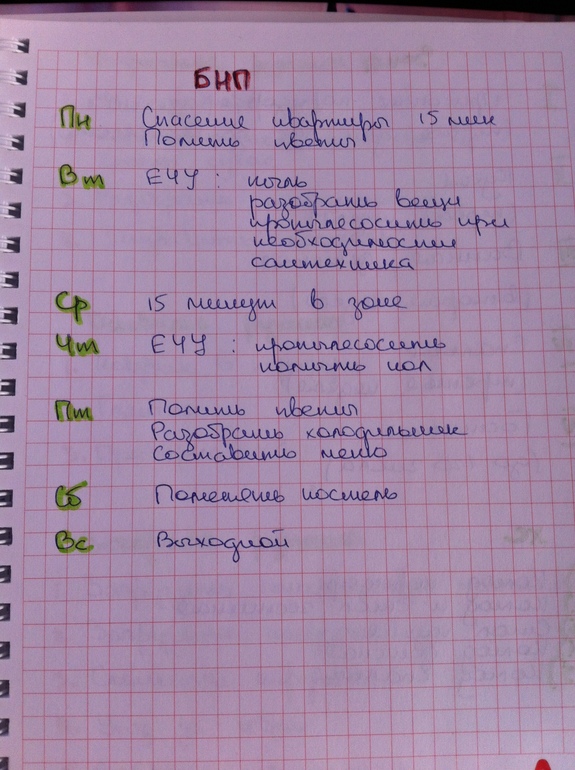 БНП
Пн Спасение квартиры 15 мин
Полить цветы
Вт ЕЧУ : пыль
разобрать вещи
пропылесосить при
необходимости
сантехника
Ср 15 минут в зоне
Чт ЕЧУ : пропылесосить
помыть пол
Пт Полить цветы
Разобрать холодильник
Составить меню
Сб Поменять постель
Вс Выходной